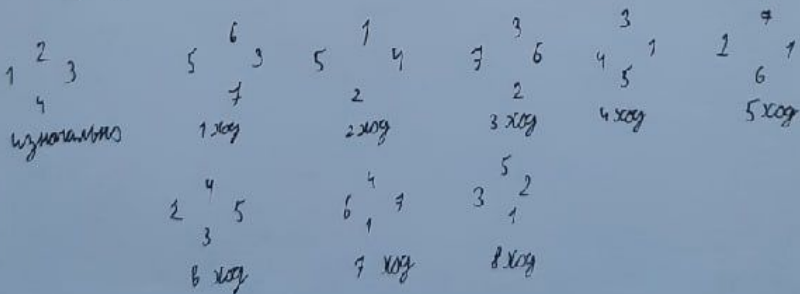 2
1 3
4
изначально
6
5 3
7
1 ход
1
5 4
2
2 ход
3
7 6
2
3 ход
3
4 1
5
4 ход
7
2 1
6
5 ход
4
2 5
3
6 ход
4
6 7
1
7 ход
5
3 2
1
8 ход